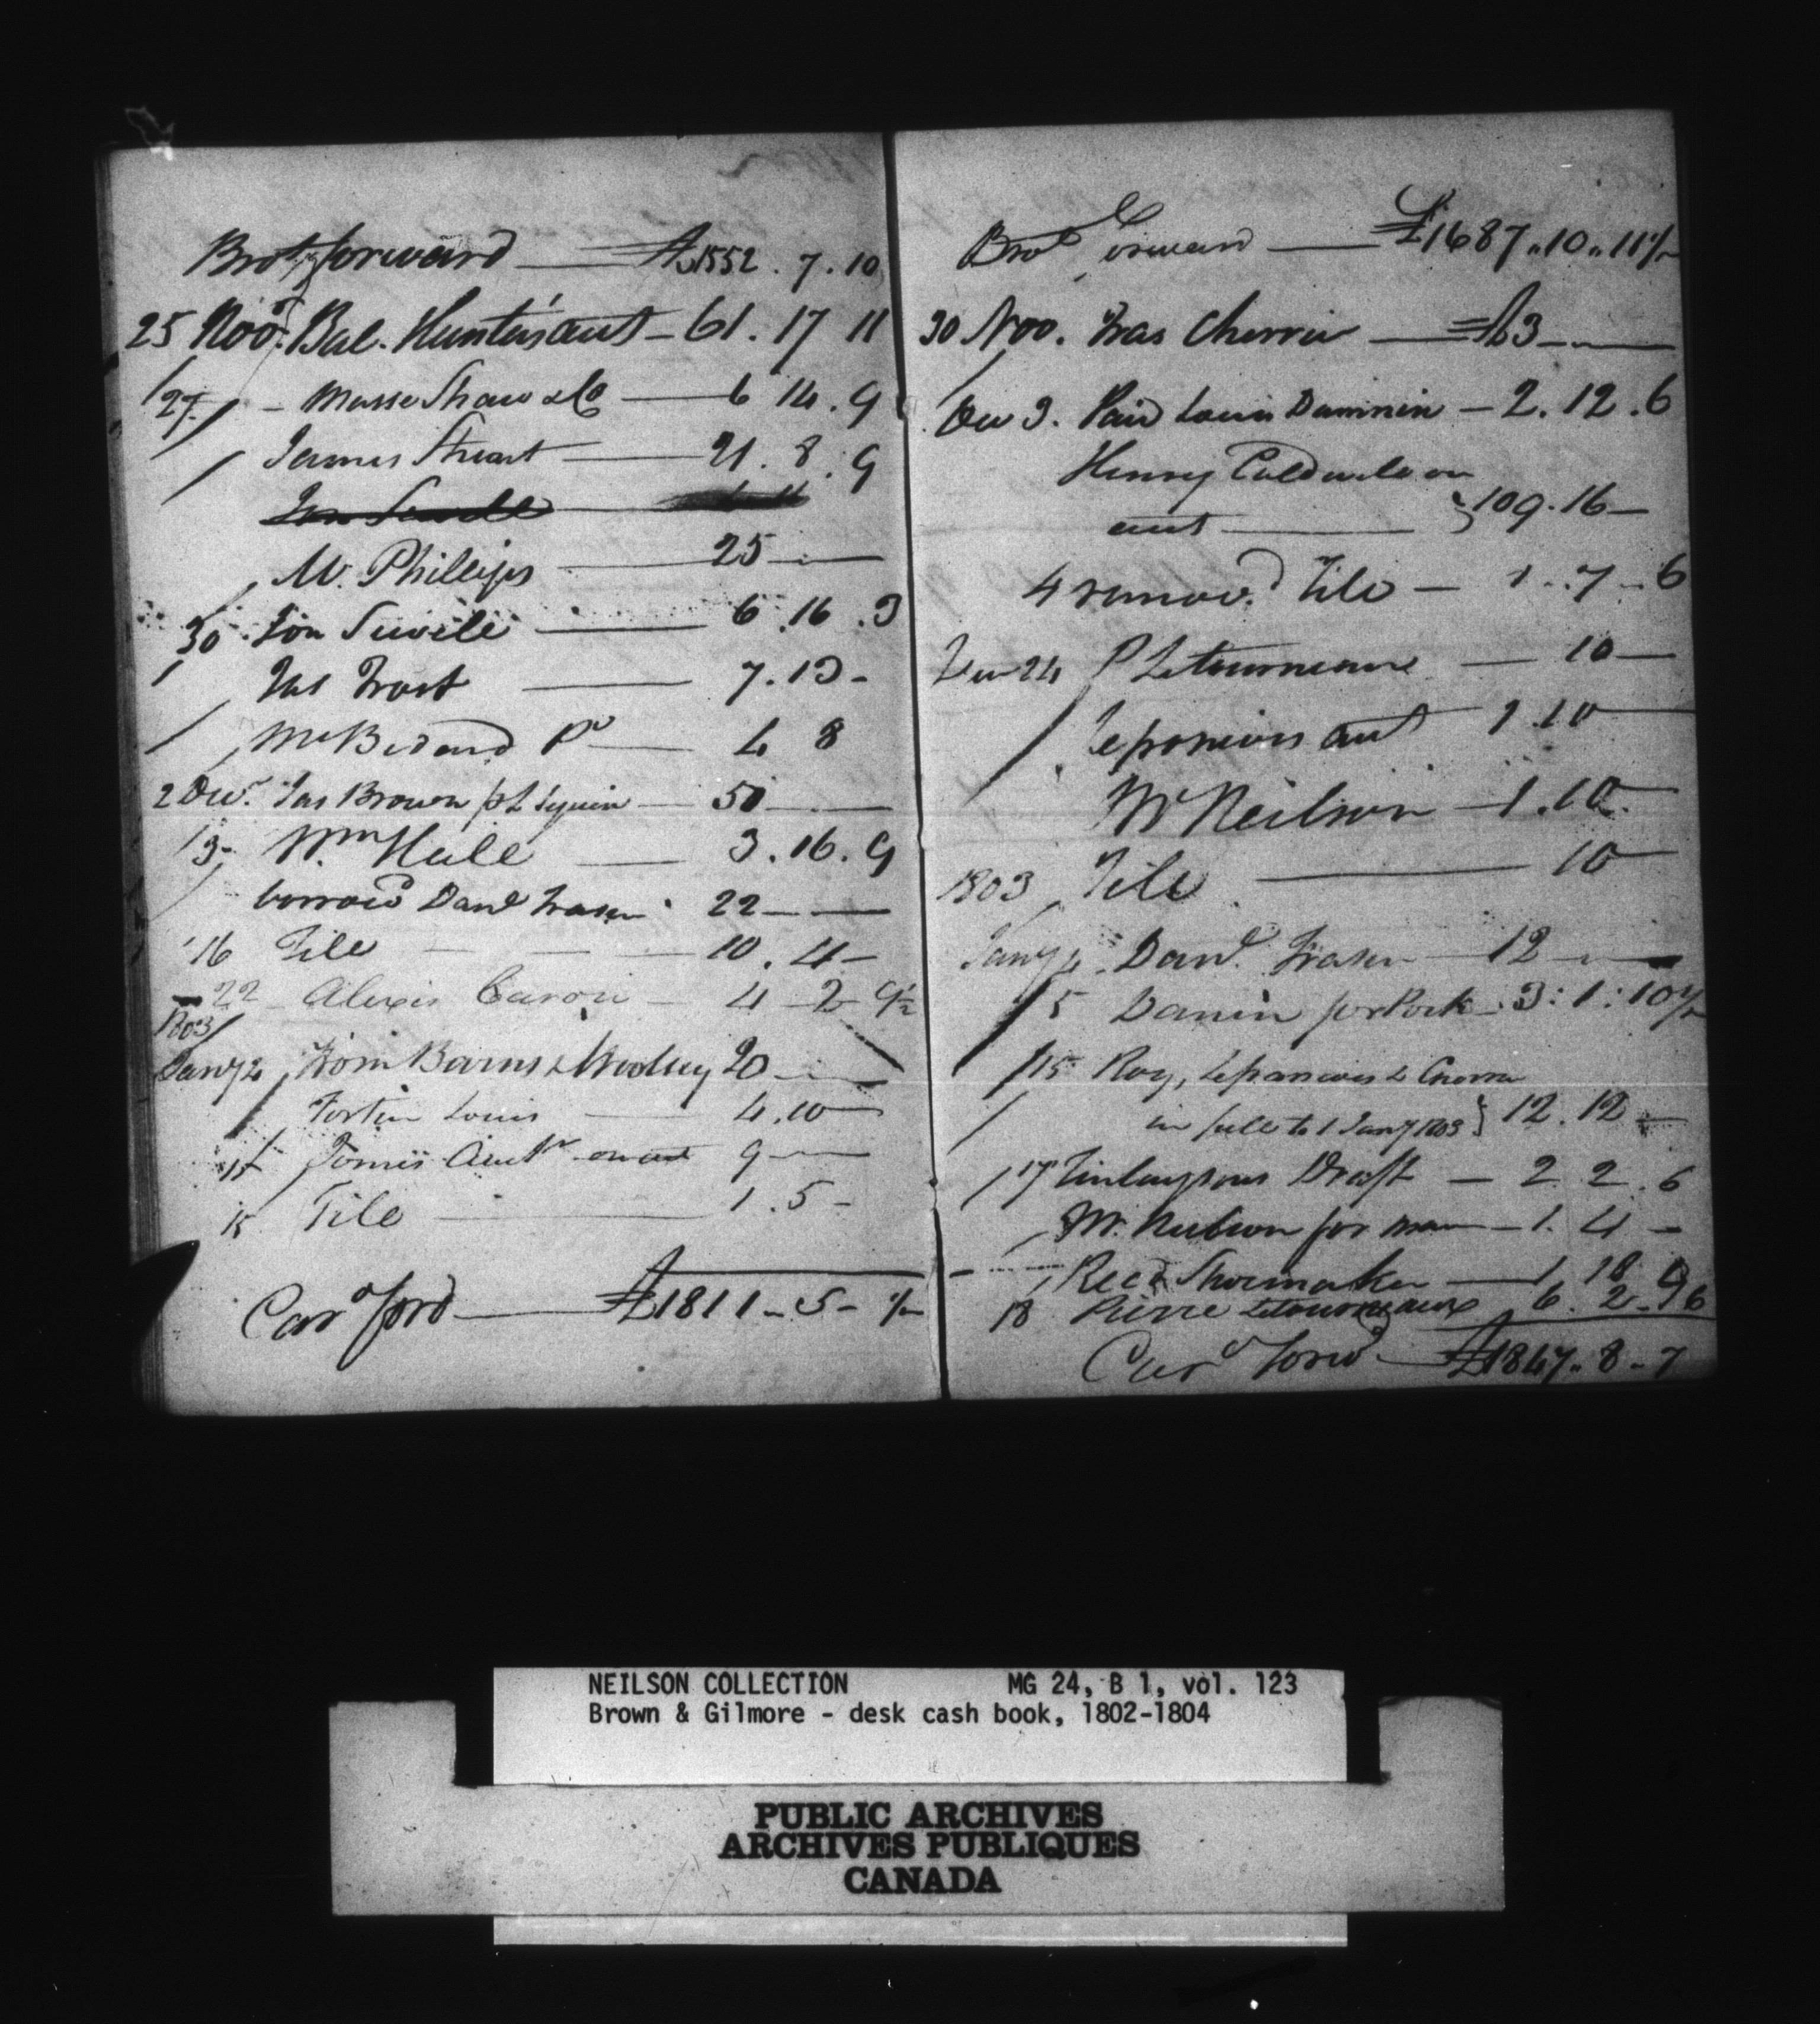 Brot forward — £1552 . 7 . 10
25 Novr. Bal. Hunter's acct — 61 . 17 11
27 — Masse Shaw & Co — 6 14 . 9
James Stuart — 21 . 8 . 9
M. Phillips — 25 —
30 Jon Sewell — 6 . 16 . 3
Jas Frost — 7 . 13 -
Mr Bedard Pr — 4 8
2 Decr. Jas Brown pr — 50 —
3 Wm Hall — 3 . 16 . 9
borrowd Dand Fraser 22 — —
16 Tile — 10 . 4 -
22 Alexis Caron — 4 - 2 - 9½
1803
Jany 2 from Burns & Woolsey 20 —
Fortin Louis — 4 . 10 —
15 on acct 9 —
15 Tile — 1 . 5 -
Card ford — £1811 - 5 - ½
Brot forward — £1687 .. 10 .. 11½
30 Nov. Fras Cherrier — £3 — —
Dec 3. Paid Louis Damien — 2 . 12 . 6
Henry Caldwell on
acct — } 109 . 16 —
4 removd. Tile — 1 . 7 - 6
Dec 24 P Letourneau — 10 —
acct 1 . 10 —
Mr Neilson — 1 . 10 -
1803 Tile — 10 —
Jany 4 Dand. Fraser — 12 — —
5 Danin for Pork - 3 : 1 : 10½
15 Roy, &
in full to 1 Jany 1803 } 12 . 12 —
17 Finlaysons Draft — 2 . 2 . 6
Mr. Neilson for man — 1 . 4 -
Recd Shoemaker — 1 18 9
18 Pierre Letourneaux 6 . 2 - 6
Card Ford — £1847 .. 8 - 7
NEILSON COLLECTION MG 24, B 1, vol. 123
Brown & Gilmore - desk cash book, 1802-1804
PUBLIC ARCHIVES
ARCHIVES PUBLIQUES
CANADA